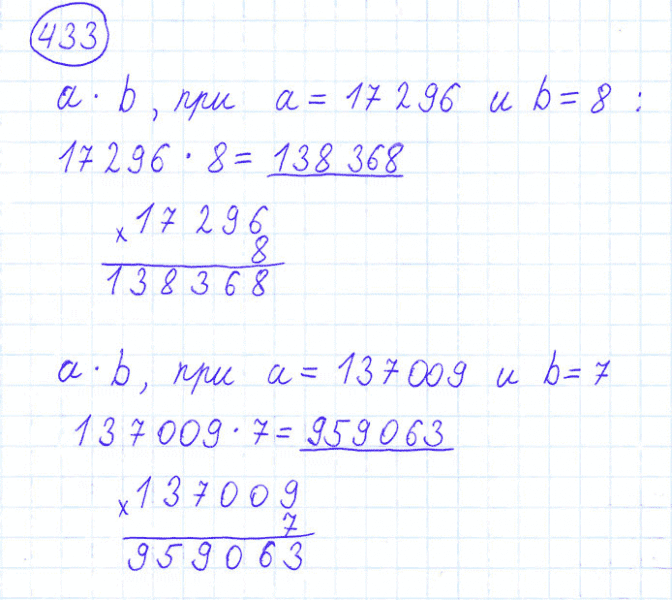 433
a · b, при a = 17 296 и b = 8 :
17 296 · 8 = 138 368
× 17 296
8
138368
a · b, при a = 137 009 и b = 7
137 009 · 7 = 959 063
× 137009
7
959063